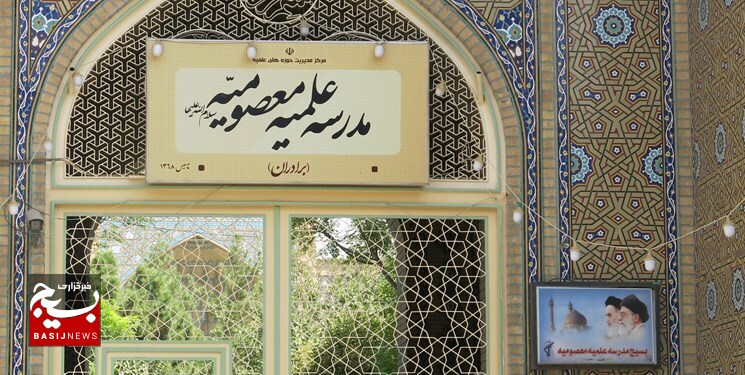 مرکز مدیریت حوزه های علمیه
مدرسه علمیه معصومیه
سلام الله علیها
(برادران)
تاسیس ۱۳۶۸
بسیج مدرسه علمیه معصومیه
خبرگزاری
بسیج
BASIJNEWS